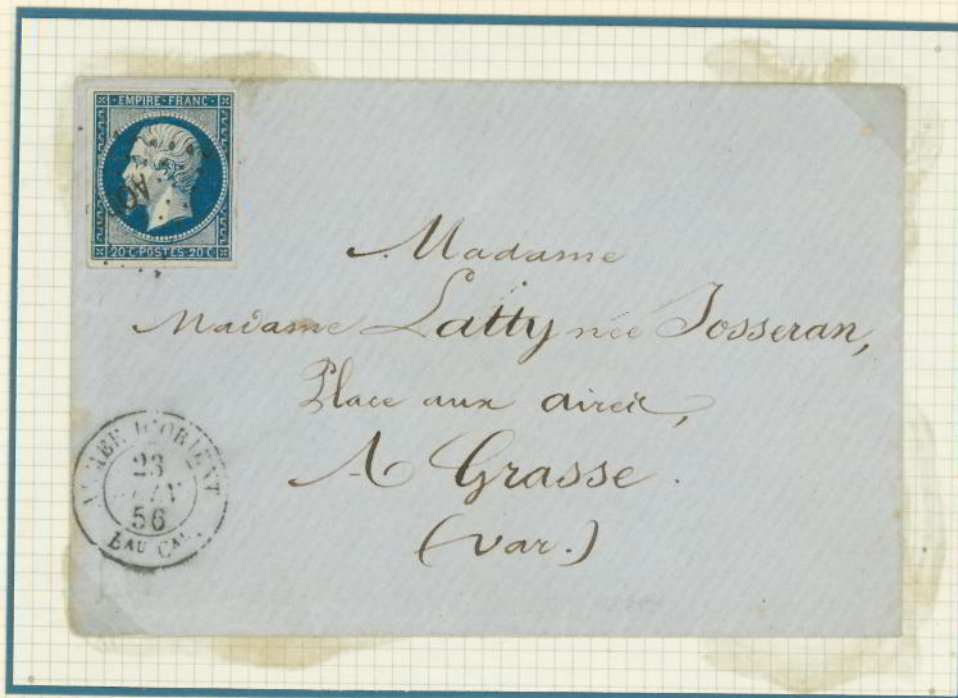 EMPIRE · FRANC ·
AO
20 C · POSTES · 20 C
Madame
Madame Latty née Josseran,
Place aux aires,
A Grasse.
(Var.)
D'ORIENT
23
56
BAU CAL.